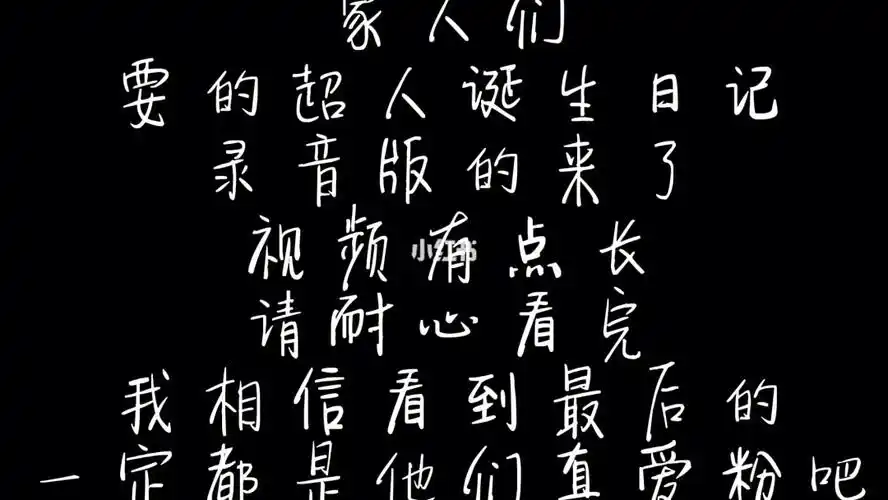 家人们
要的超人诞生日记
录音版的来了
视频有点长
小红书
请耐心看完
我相信看到最后的
一定都是他们真爱粉吧